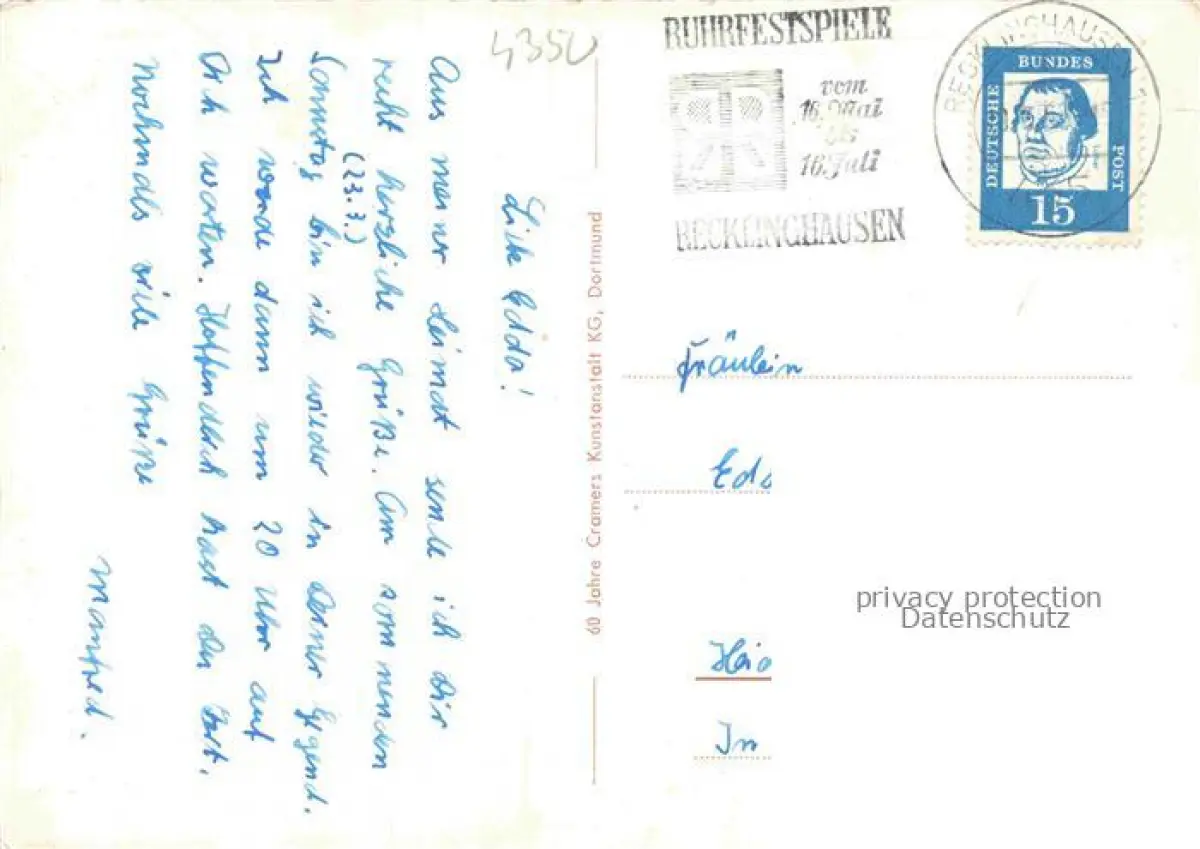 4350
Liebe Edda!
Aus meiner Heimat sende ich Dir
recht herzliche Grüße. Am kommenden
(23.7.)
Sonntag bin ich wieder in Deiner Gegend.
Ich werde dann um 20 Uhr auf
Dich warten. Hoffendlich hast du Zeit.
Nochmals viele Grüße
Manfred.
60 Jahre Cramers Kunstanstalt KG, Dortmund
RUHRFESTSPIELE
vom
16. Mai
bis
16. Juli
RECKLINGHAUSEN
RECKLINGHAUSEN
DEUTSCHE
BUNDES
POST
15
Fräulein
Edd
Hai
In
privacy protection
Datenschutz